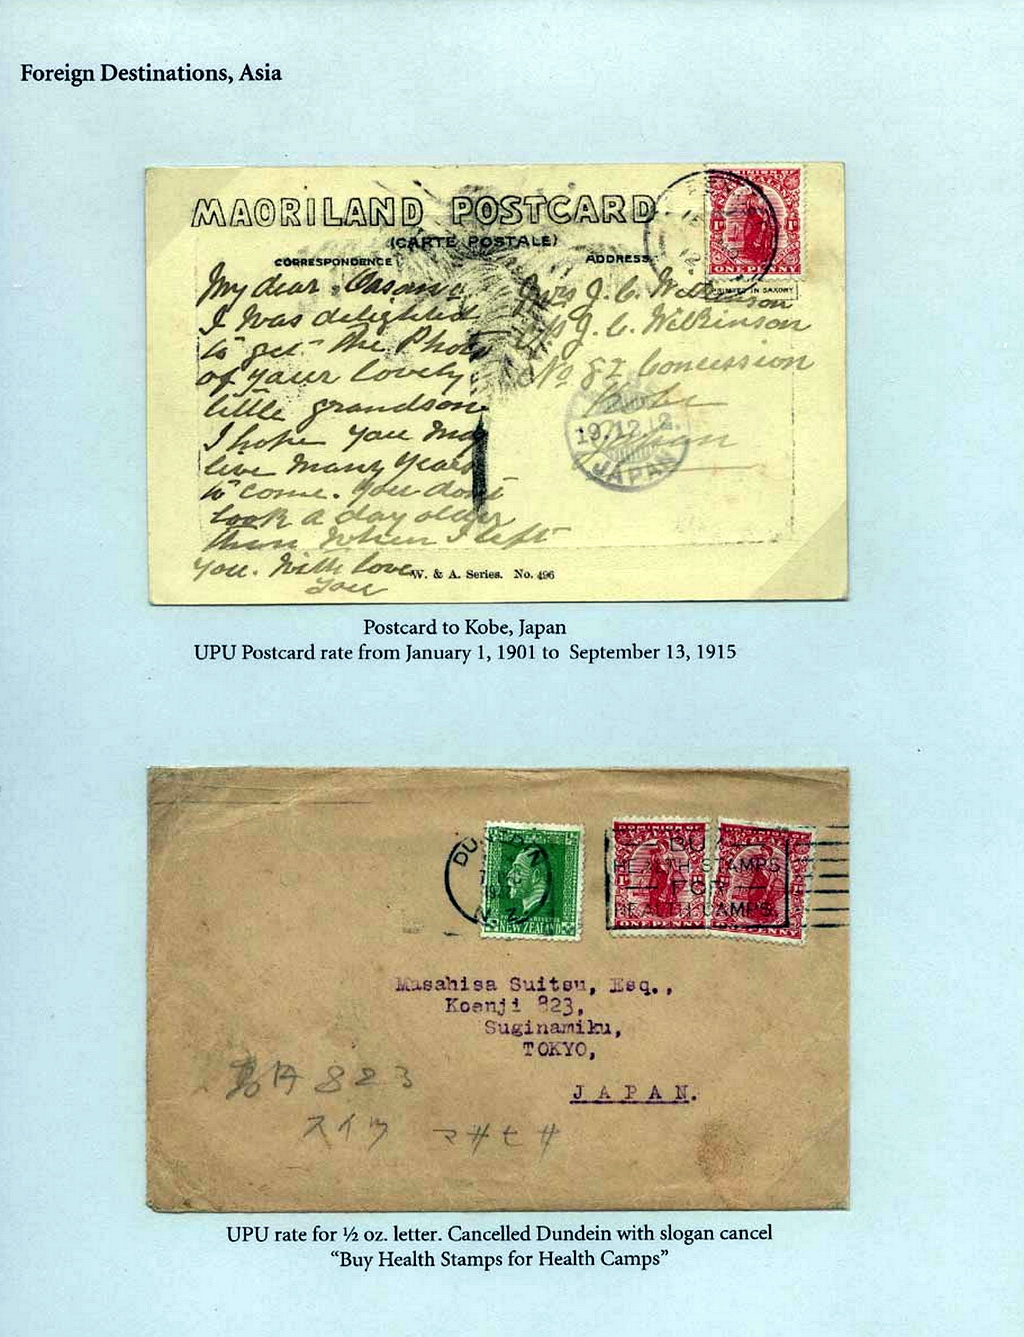 Foreign Destinations, Asia
MAORILAND POSTCARD
(CARTE POSTALE)
CORRESPONDENCE
ADDRESS.
ONE PENNY
PRINTED IN SAXONY
My dear
I was delighted
to get the Photo
of your lovely
little grandson
I hope you may
live many years
to come. You dont
look a day older
than when I left
you. With love
Mrs J. C. Wilkinson
J. C. Wilkinson
No 82 Concession
Kobe
Japan
19.12.12.
JAPAN
W. & A. Series. No. 496
Postcard to Kobe, Japan
UPU Postcard rate from January 1, 1901 to September 13, 1915
N.Z.
NEW ZEALAND
BUY
HEALTH STAMPS
FOR
HEALTH CAMPS
ONE PENNY
ONE PENNY
Masahisa Suitsu, Esq.,
Koenji 823,
Suginamiku,
TOKYO,
JAPAN.
823
スイツ マサヒサ
UPU rate for ½ oz. letter. Cancelled Dundein with slogan cancel
“Buy Health Stamps for Health Camps”